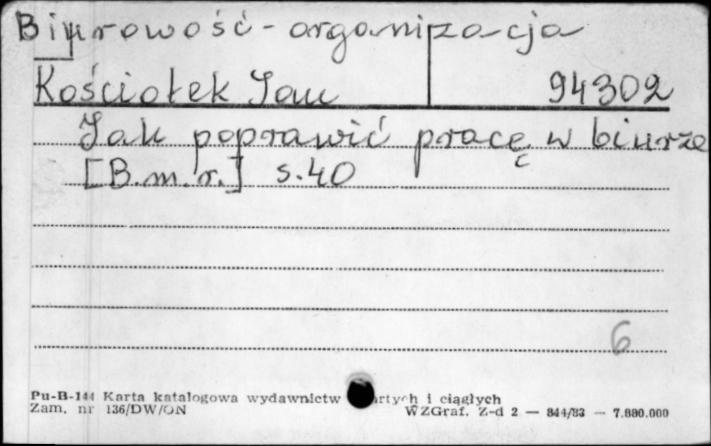 Biurowość - organizacja
Kościołek Jan 94302
Jak poprawić pracę w biurze
[B.m.r.] s.40
6
Pu-B-144 Karta katalogowa wydawnictw i ciągłych
Zam. nr 136/DW/ON WZGraf. Z-d 2 — 844/83 — 7.800.000